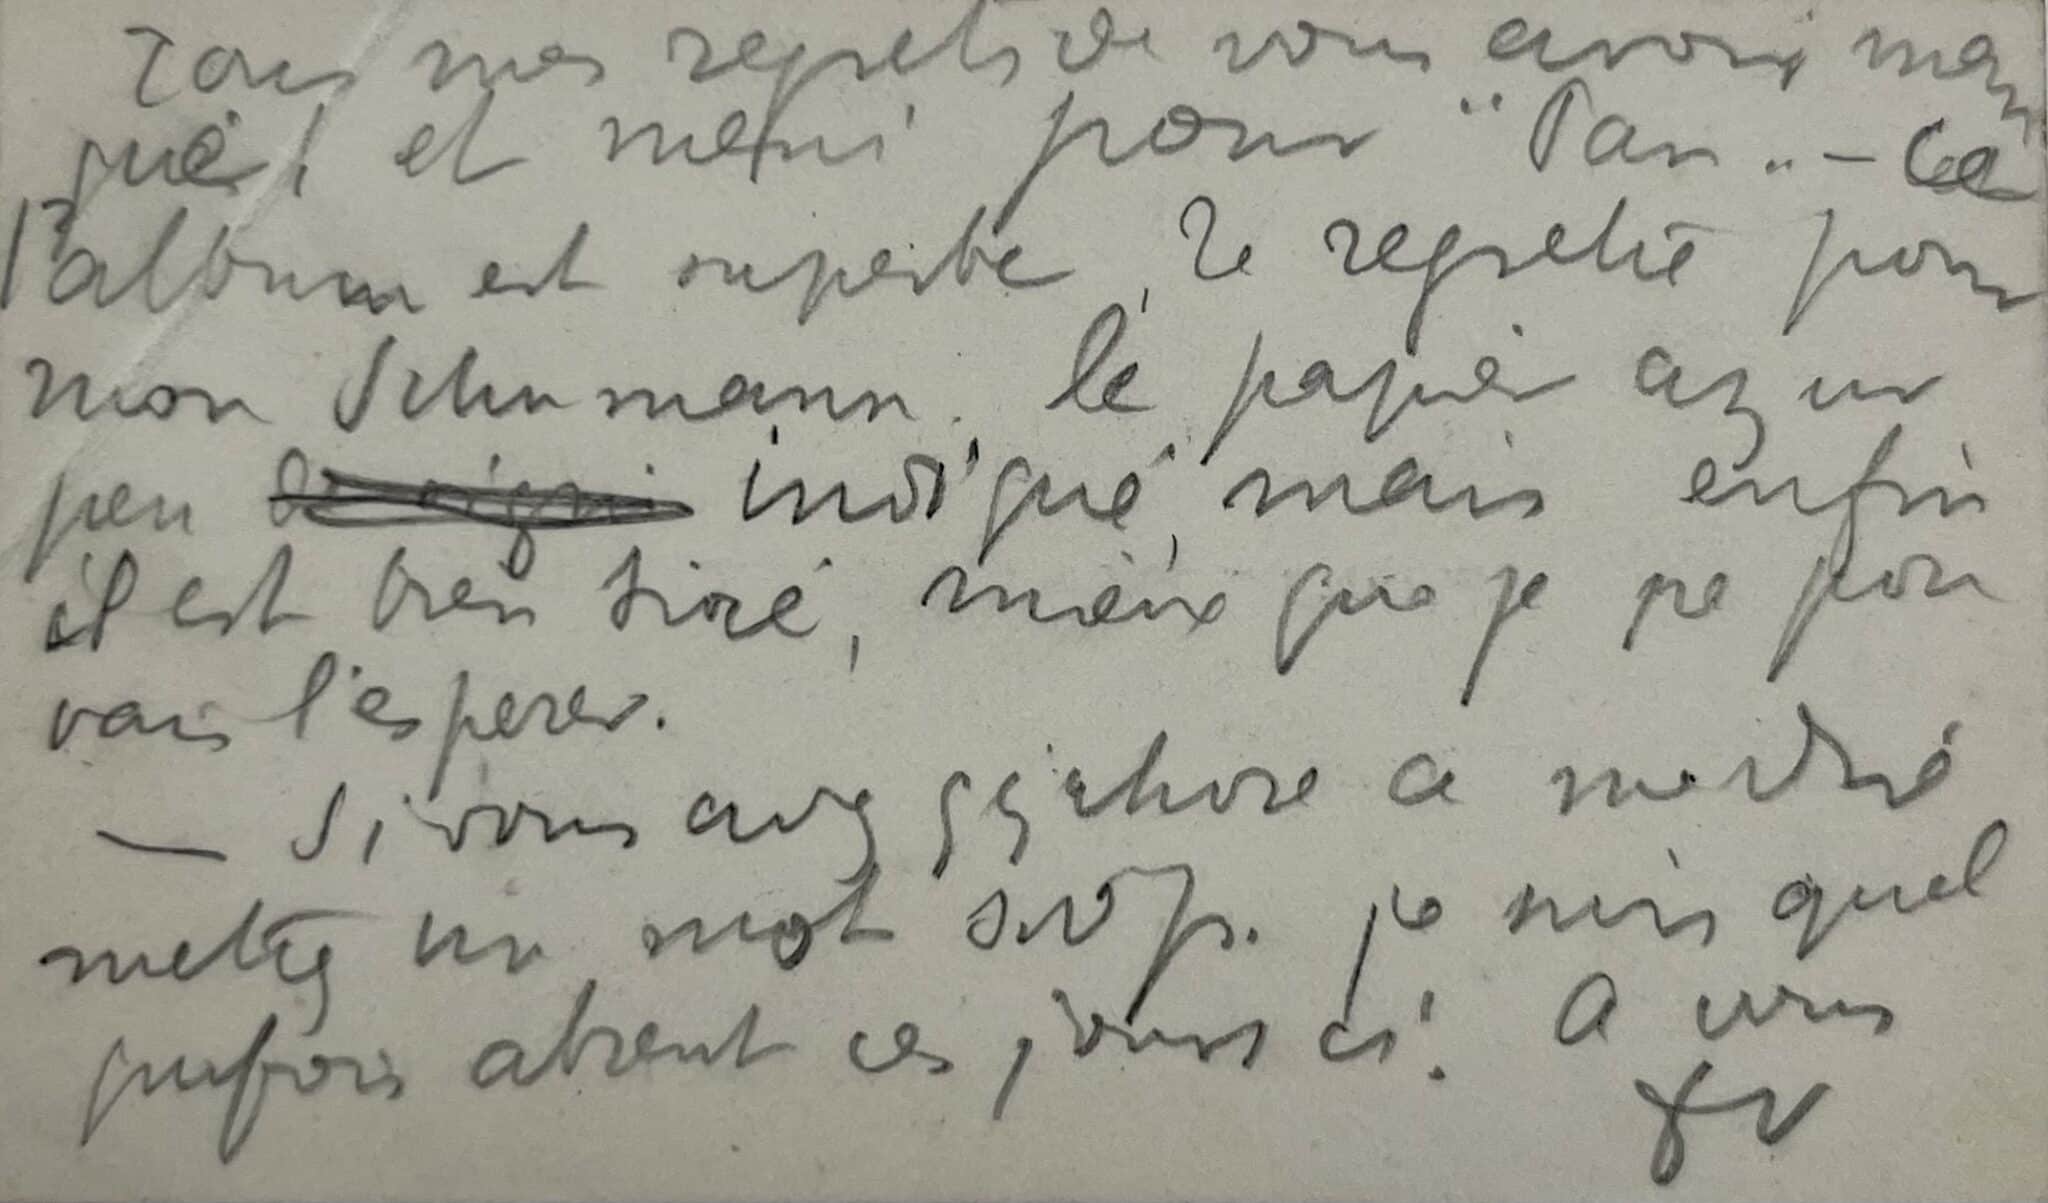 Tous mes regrets de vous avoir man
qué! et merci pour "Pan" – Ce
l'album est superbe, Je regrette pour
mon Schumann. le papier azur
peu indiqué, mais enfin
il est bien tiré, mieux que je ne pou
vais l'esperer.
— Si vous avez qq chose a me dire
mettez un mot svp. je suis quel
quefois absent ces jours ci. A vous